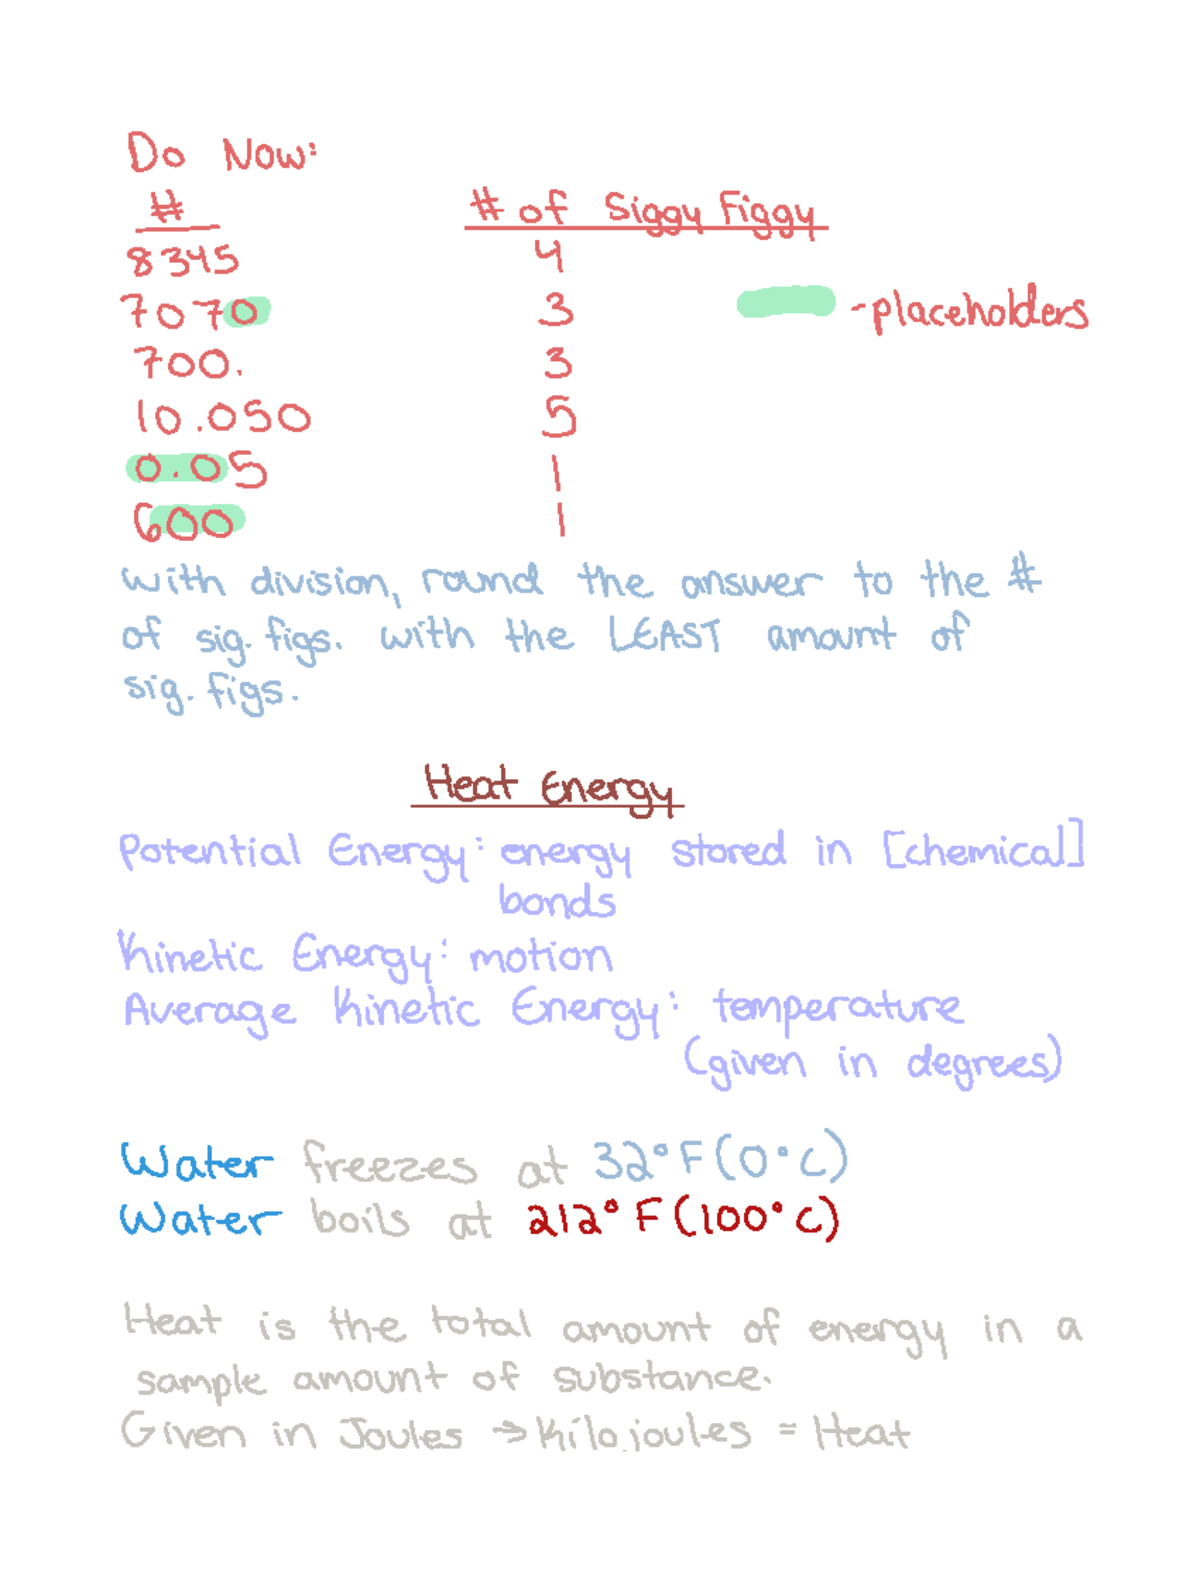 Do Now:
# # of Siggy Figgy
8345 4
7070 3 -placeholders
700. 3
10.050 5
0.05 1
600 1
With division, round the answer to the #
of sig. figs. with the LEAST amount of
sig. figs.
Heat Energy
Potential Energy: energy stored in [chemical]
bonds
Kinetic Energy: motion
Average Kinetic Energy: temperature
(given in degrees)
Water freezes at 32°F (0°C)
Water boils at 212°F (100°C)
Heat is the total amount of energy in a
sample amount of substance.
Given in Joules → Kilojoules = Heat